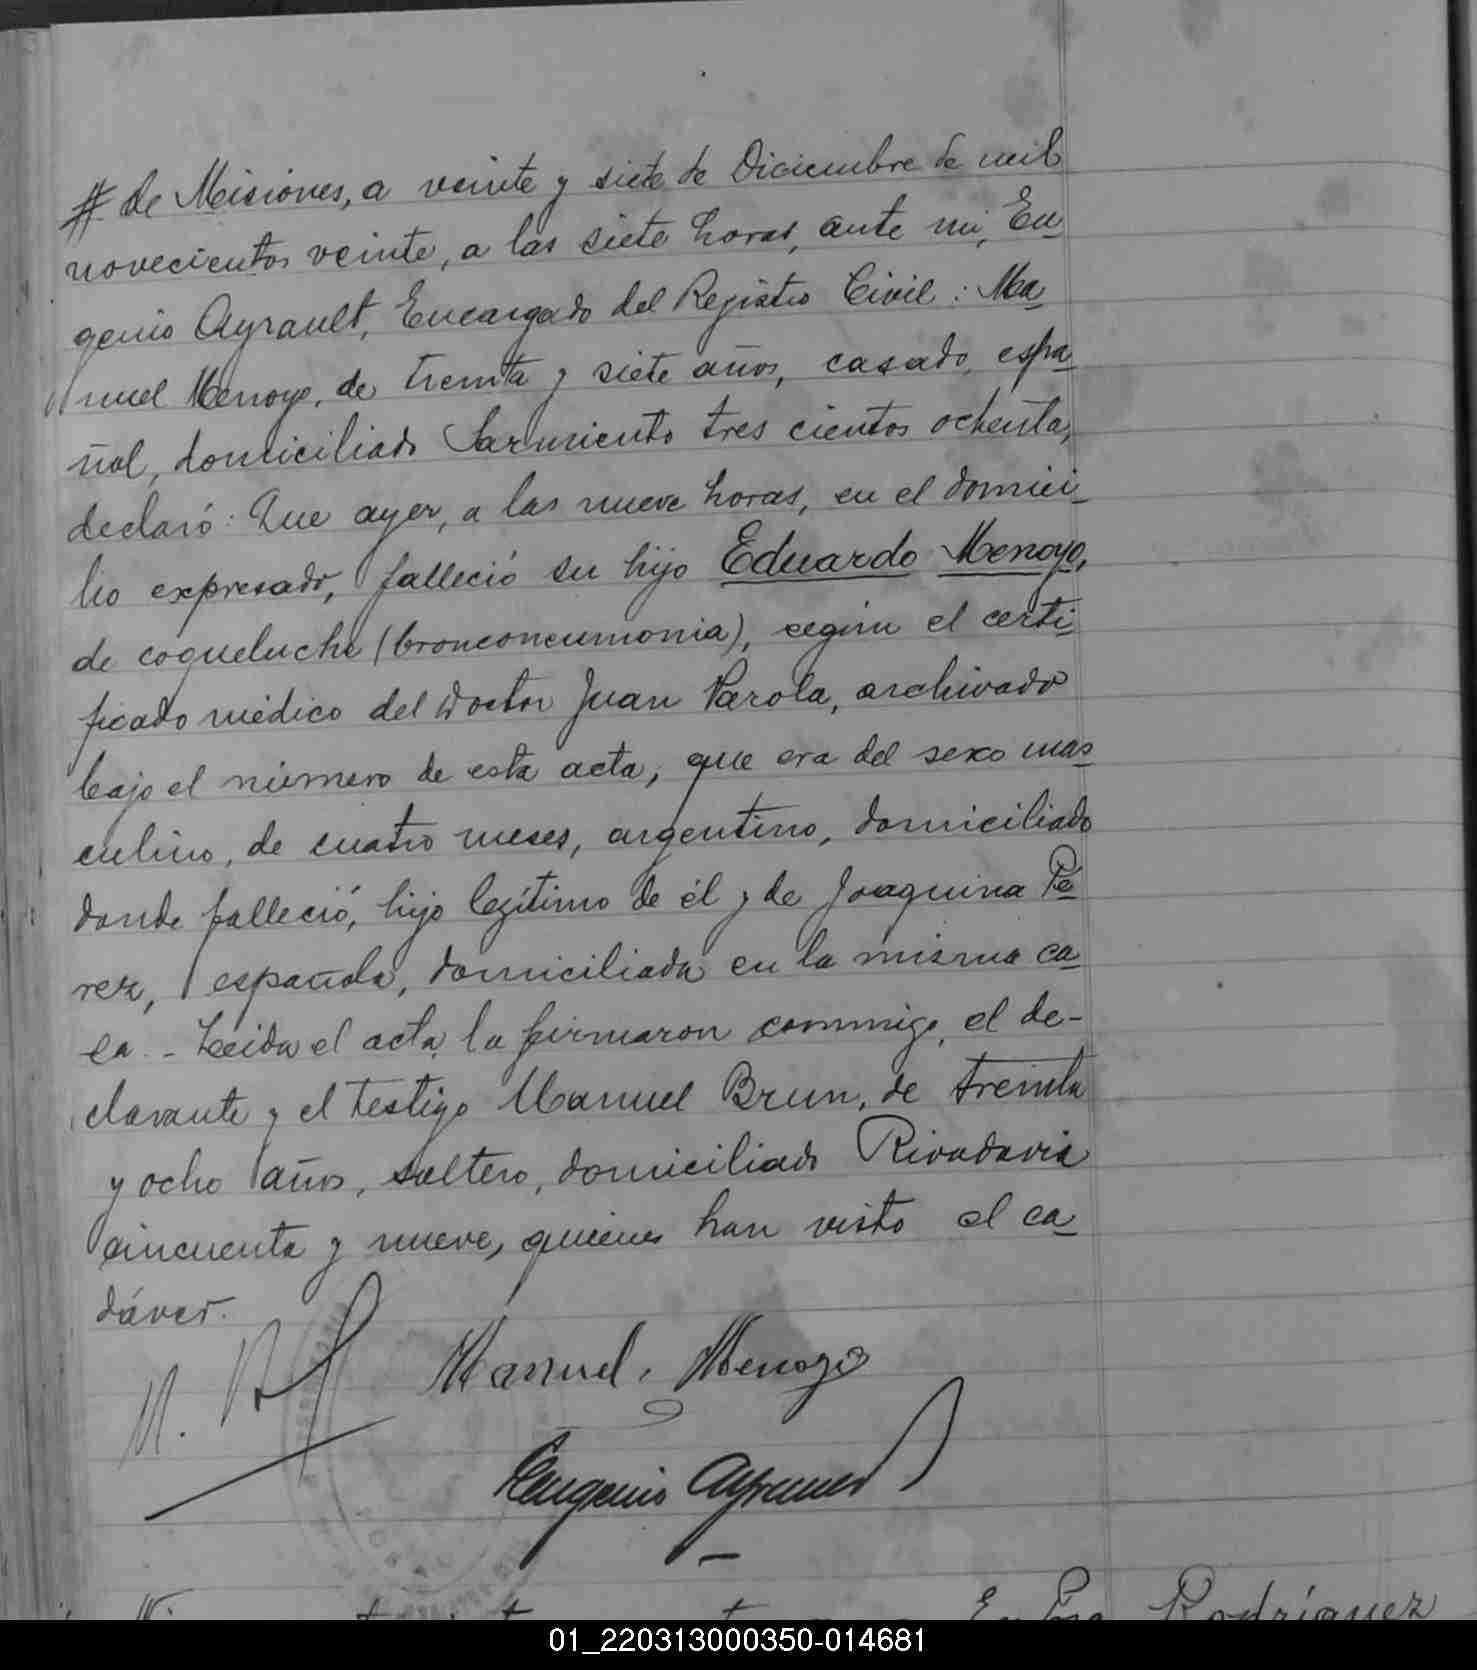 # de Misiones, a veinte y siete de Diciembre de mil
novecientos veinte, a las siete horas, ante mi, Eu
genio Ayrault, Encargado del Registro Civil: Ma
nuel Menoyo, de treinta y siete años, casado, espa
ñol, domiciliado Sarmiento tres cientos ochenta,
declaró: Que ayer, a las nueve horas, en el domici
lio expresado, falleció su hijo Eduardo Menoyo,
de coqueluche (bronconeumonia), según el certi
ficado médico del Doctor Juan Parola, archivado
bajo el número de esta acta, que era del sexo mas
culino, de cuatro meses, argentino, domiciliado
donde falleció, hijo legítimo de él y de Joaquina Pé
rez, española, domiciliada en la misma ca
sa. - Leida el acta, la firmaron conmigo, el de-
clarante y el testigo Manuel Brun, de treinta
y ocho años, soltero, domiciliado Rivadavia
cincuenta y nueve, quienes han visto el ca
dáver.
Manuel Menoyo
Eugenio Ayrault
Rodríguez
01_220313000350-014681